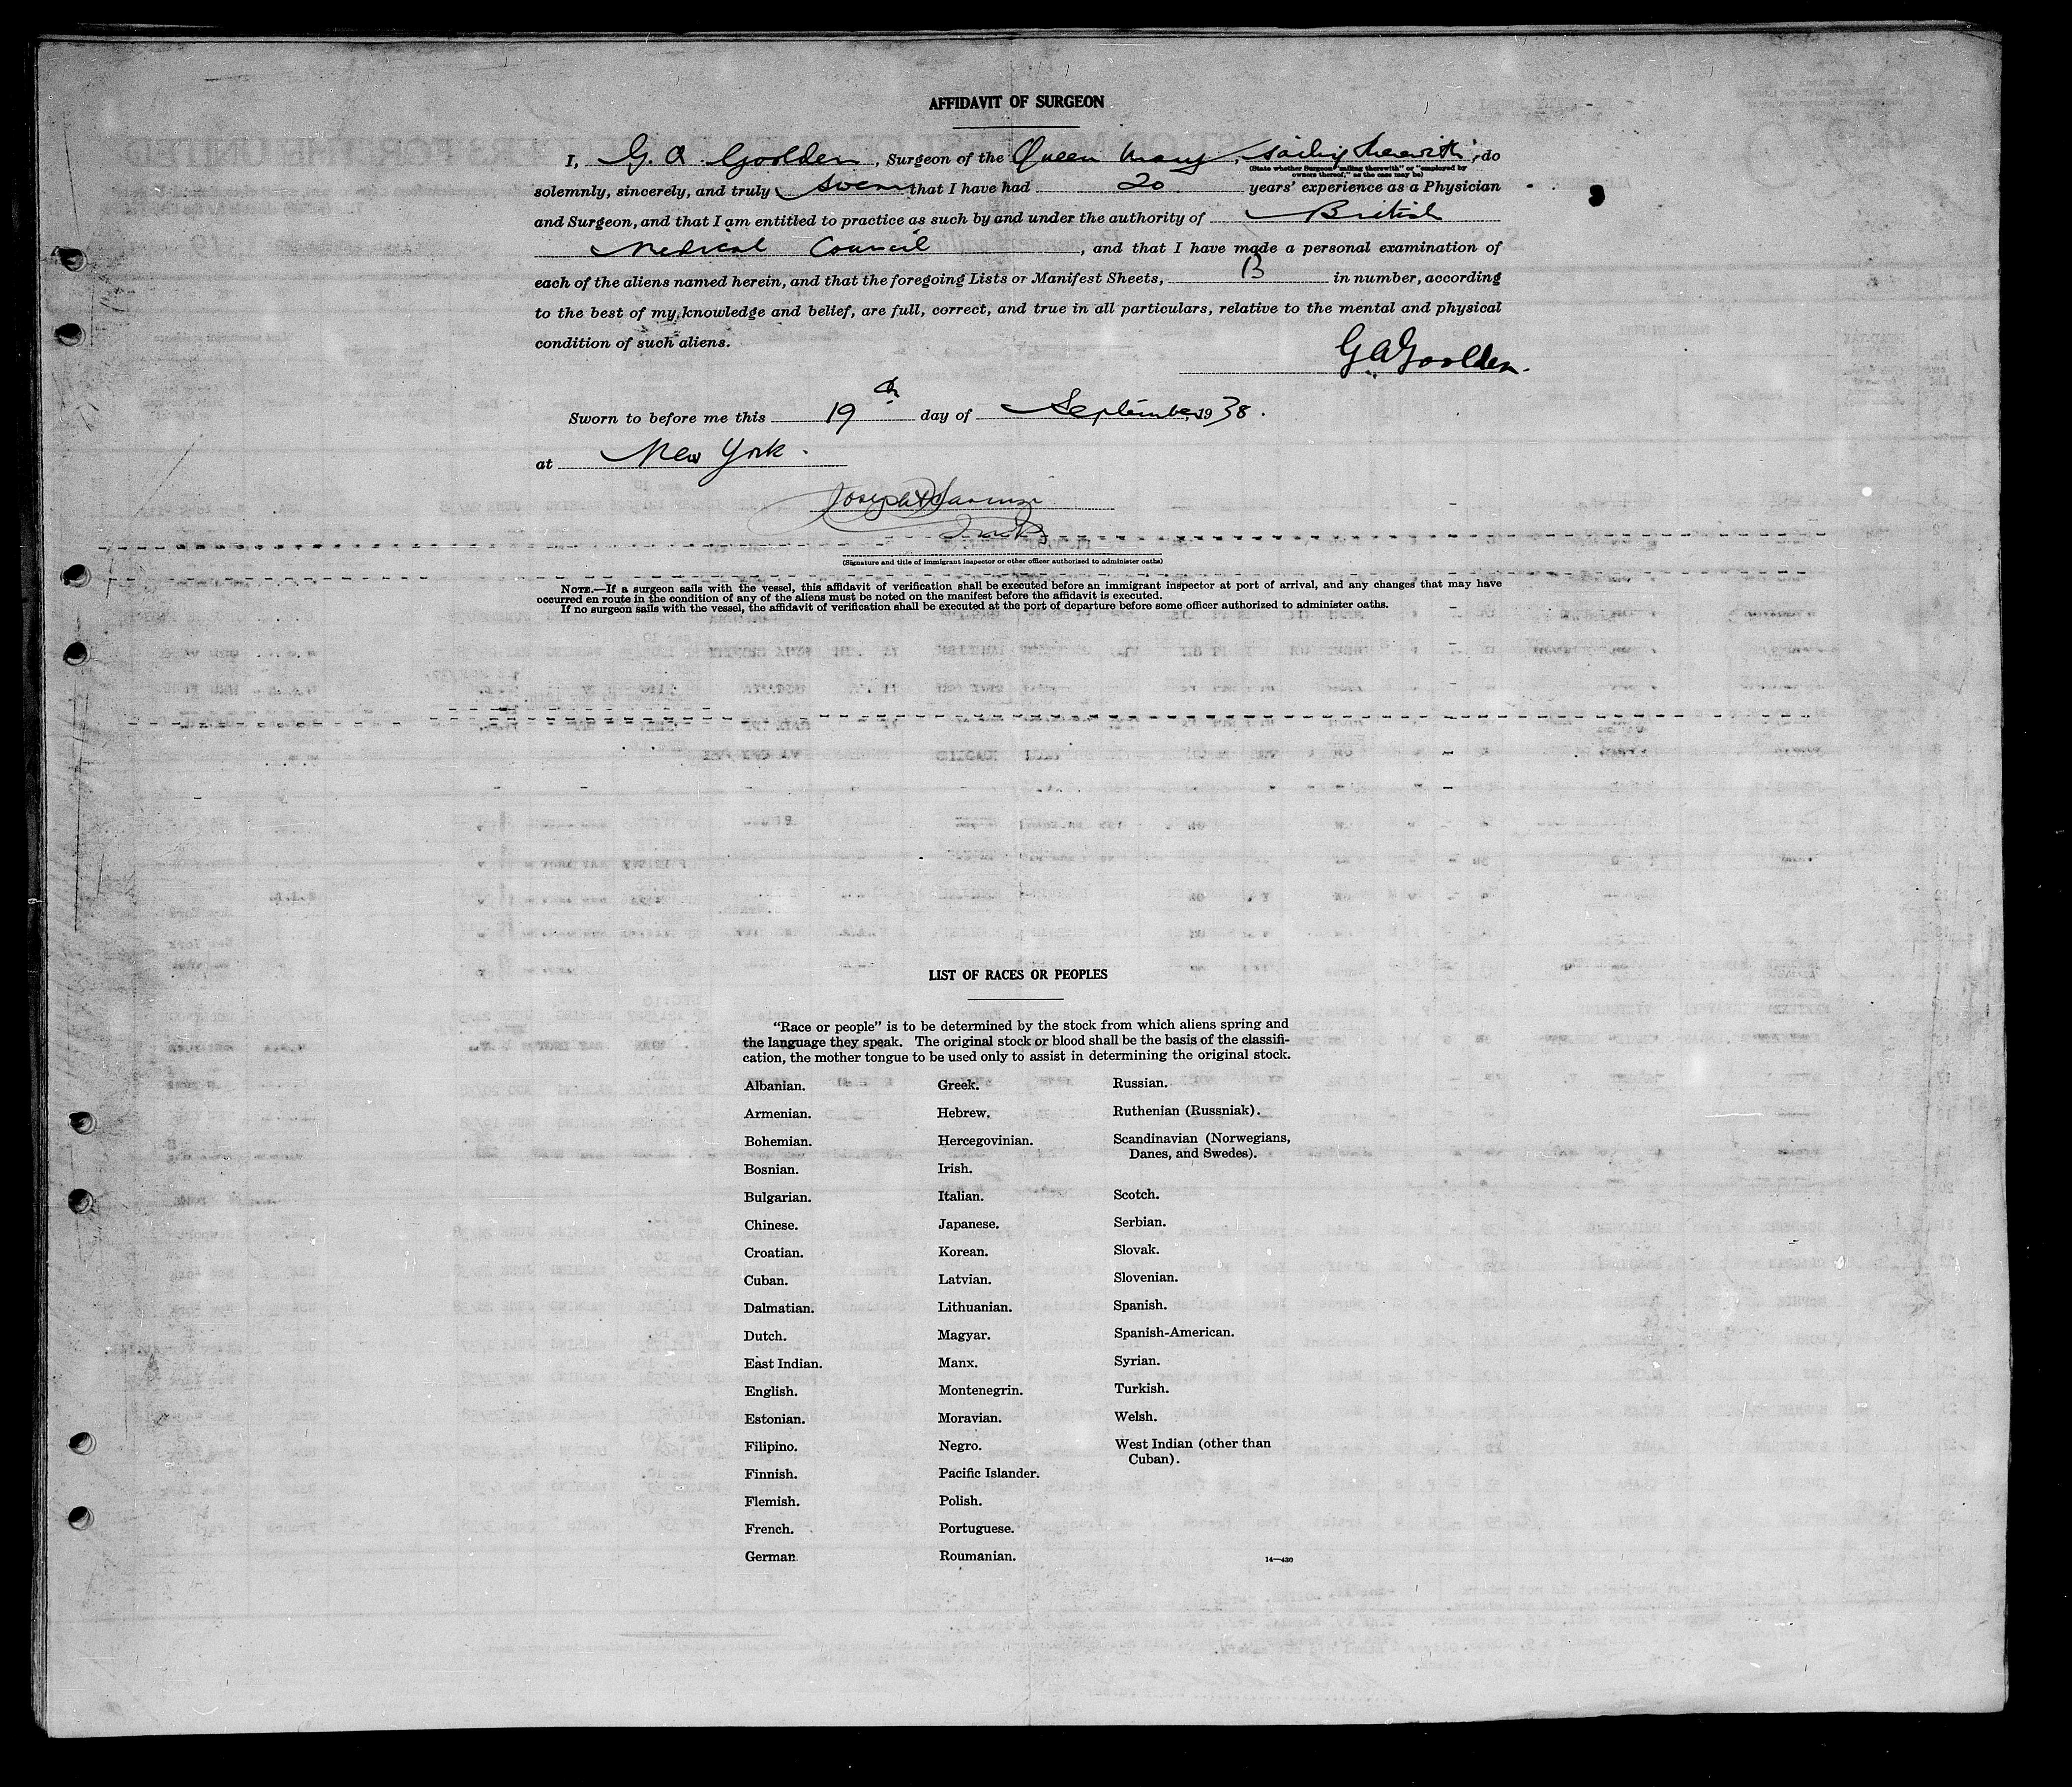 AFFIDAVIT OF SURGEON
I, G. A. Goolden, Surgeon of the Queen Mary, sailing therewith, do
(State whether Surgeon "sailing therewith" or "employed by
owners thereof," as the case may be)
solemnly, sincerely, and truly swear that I have had 20 years' experience as a Physician
and Surgeon, and that I am entitled to practice as such by and under the authority of British
Medical Council, and that I have made a personal examination of
each of the aliens named herein, and that the foregoing Lists or Manifest Sheets, 13 in number, according
to the best of my knowledge and belief, are full, correct, and true in all particulars, relative to the mental and physical
condition of such aliens.
G. A. Goolden.
Sworn to before me this 19th day of September, 1938.
at New York.
Joseph
(Signature and title of immigrant inspector or other officer authorized to administer oaths)
NOTE.—If a surgeon sails with the vessel, this affidavit of verification shall be executed before an immigrant inspector at port of arrival, and any changes that may have
occurred en route in the condition of any of the aliens must be noted on the manifest before the affidavit is executed.
If no surgeon sails with the vessel, the affidavit of verification shall be executed at the port of departure before some officer authorized to administer oaths.
LIST OF RACES OR PEOPLES
"Race or people" is to be determined by the stock from which aliens spring and
the language they speak. The original stock or blood shall be the basis of the classifi-
cation, the mother tongue to be used only to assist in determining the original stock.
Albanian.
Armenian.
Bohemian.
Bosnian.
Bulgarian.
Chinese.
Croatian.
Cuban.
Dalmatian.
Dutch.
East Indian.
English.
Estonian.
Filipino.
Finnish.
Flemish.
French.
German
Greek.
Hebrew.
Hercegovinian.
Irish.
Italian.
Japanese.
Korean.
Latvian.
Lithuanian.
Magyar.
Manx.
Montenegrin.
Moravian.
Negro.
Pacific Islander.
Polish.
Portuguese.
Roumanian.
Russian.
Ruthenian (Russniak).
Scandinavian (Norwegians,
Danes, and Swedes).
Scotch.
Serbian.
Slovak.
Slovenian.
Spanish.
Spanish-American.
Syrian.
Turkish.
Welsh.
West Indian (other than
Cuban).
14—430